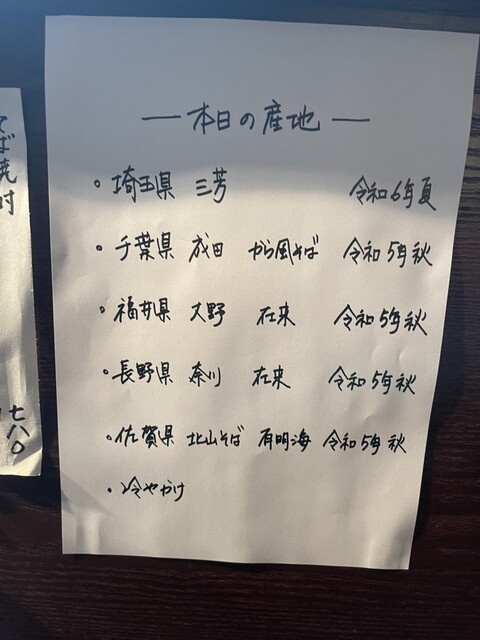 本日の産地
・埼玉県 三芳 令和6年夏
・千葉県 成田 から風そば 令和5年秋
・福井県 大野 在来 令和5年秋
・長野県 奈川 在来 令和5年秋
・佐賀県 北山そば 有明海 令和5年秋
・冷やかけ
そば焼
七八〇